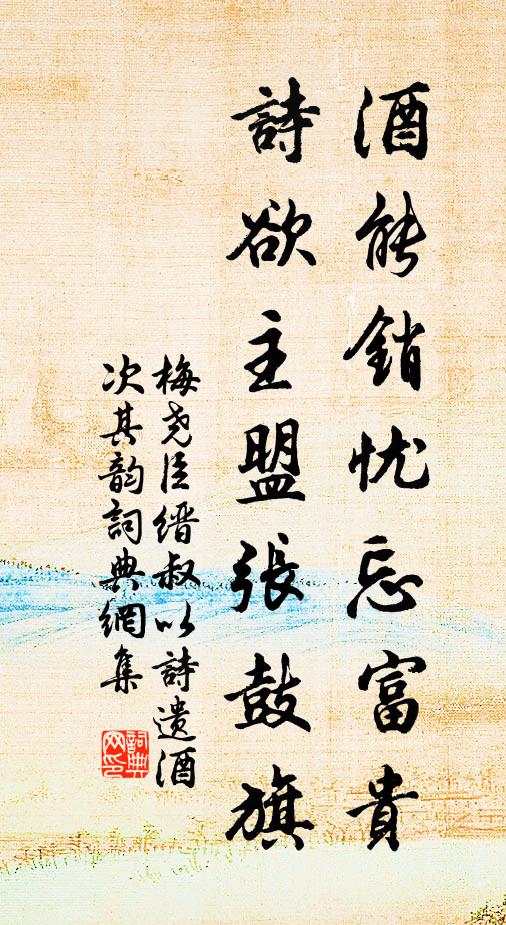 酒能銷忧忘富貴
詩欲主盟張鼓旗
梅尧臣缙叔以詩遗酒
次其韵詞典網集
詞典网印